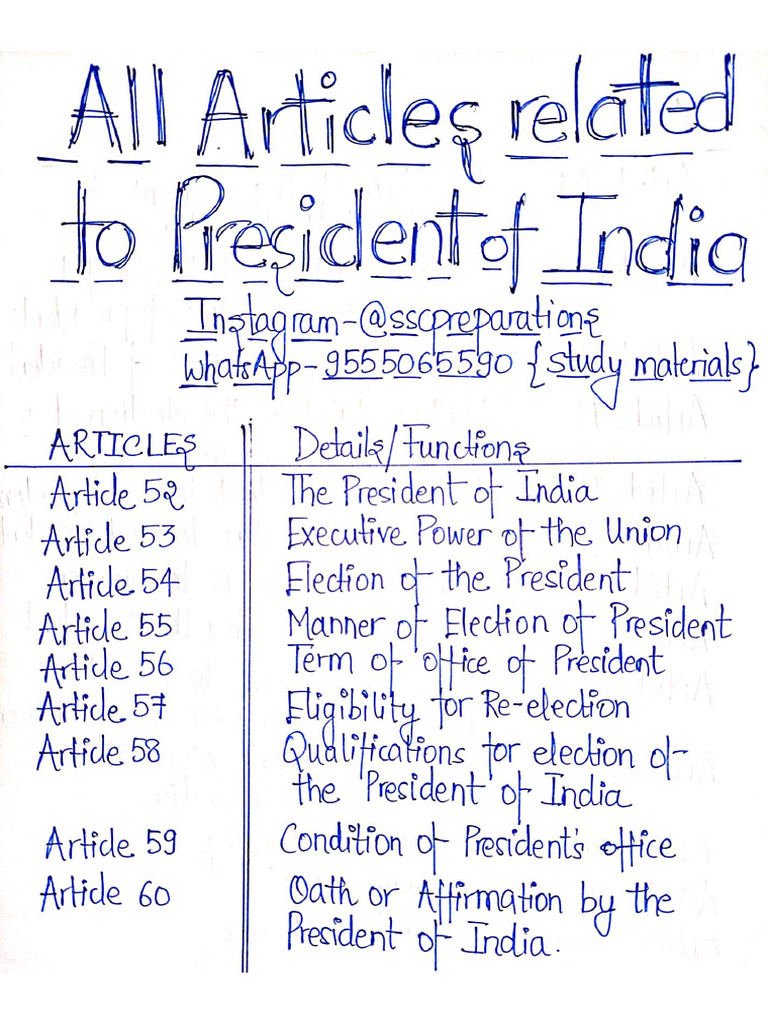 All Articles related
to President of India
Instagram-@sscpreparations
WhatsApp-9555065590 {study materials}
ARTICLES Details/Functions
Article 52 The President of India
Article 53 Executive Power of the Union
Article 54 Election of the President
Article 55 Manner of Election of President
Article 56 Term of office of President
Article 57 Eligibility for Re-election
Article 58 Qualifications for election of
the President of India
Article 59 Condition of President's office
Article 60 Oath or Affirmation by the
President of India.